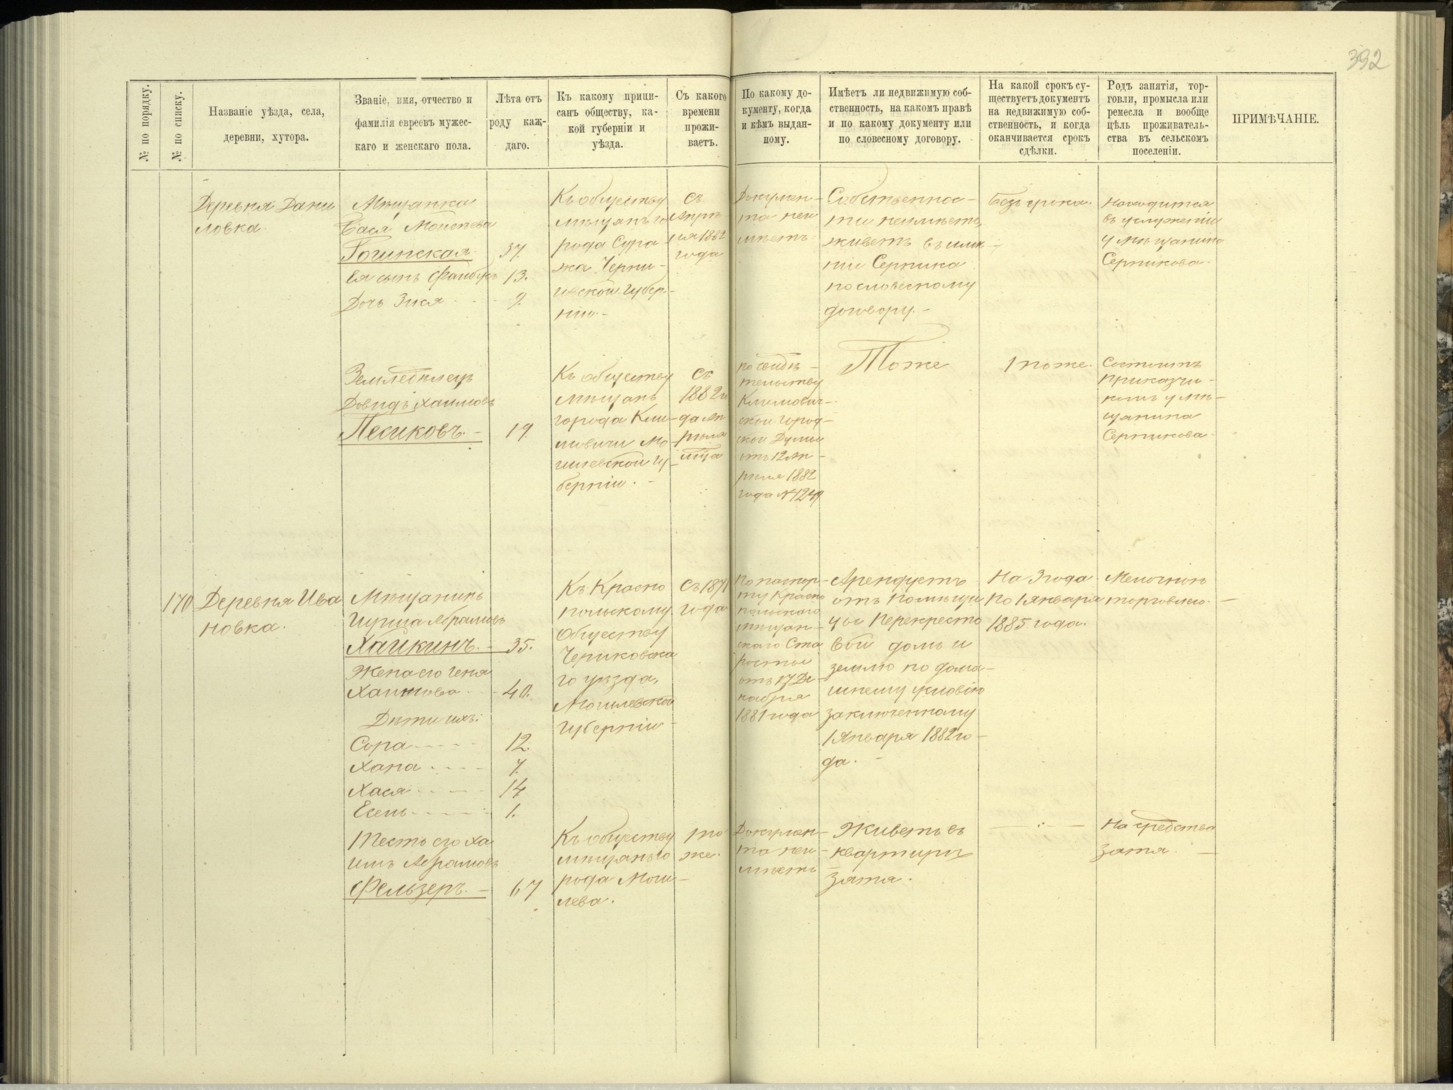 332
№ по порядку.
№ по списку.
Названіе уѣзда, села,
деревни, хутора.
Званіе, имя, отчество и
фамилія евреевъ мужес-
каго и женскаго пола.
Лѣта отъ
роду каж-
даго.
Къ какому припи-
санъ обществу, ка-
кой губерніи и
уѣзда.
Съ какого
времени
прожи-
ваетъ.
По какому до-
кументу, когда
и кѣмъ выдан-
ному.
Имѣетъ ли недвижимую соб-
ственность, на какомъ правѣ
и по какому документу или
по словесному договору.
На какой срокъ су-
ществуетъ документъ
на недвижимую соб-
ственность, и когда
оканчивается срокъ
сдѣлки.
Родъ занятія, тор-
говли, промысла или
ремесла и вообще
цѣль проживатель-
ства въ сельскомъ
поселеніи.
ПРИМѢЧАНІЕ.
Деревня Дани
ловка.
Мѣщанка
Бася
Рогинская 37.
Ея сынъ 13.
Дочь Зися
Къ обществу
мѣщанъ го
рода Сура
жа Черни-
говской Губер-
ніи.
Съ
Апрѣ
ля 1882
года
Докумен-
та неи
мѣетъ
Собственнос-
ти неимѣетъ,
живетъ въ имѣ-
ніи Серпика
по словесному
договору.
Безъ срока.
Находится
въ услуженіи
у мѣщанина
Серпикова.
Земледѣлецъ
Довидъ Хаимовъ
Песиковъ 19
Къ обществу
мѣщанъ
города Кли-
мовичи Мо-
гилевской Гу-
берніи.
Съ
1882 го
да Ап-
рѣля
мѣсяца
По свидѣ-
тельству
Климович-
ской Город-
ской Думы
отъ 12 Ап-
рѣля 1882
года №
Тоже
Тоже.
Состоитъ
прикащи-
комъ у мѣ-
щанина
Серпикова.
170 Деревня Ива
новка.
Мѣщанинъ
Абрамовъ
Хайкинъ. 35.
Жена его Геня
Хаимова 40.
Дѣти ихъ:
Сора 12.
Хана 7.
Хася 14
Есель 1.
Къ Красно
польскому
Обществу
Чериковска
го уѣзда,
Могилевской
Губерніи
Съ 1871
года
По паспор-
ту Красно
польскаго
мѣщан-
скаго Ста
росты
отъ 17 Де-
кабря
1881 года
Арендуетъ
отъ Помѣщи
цы Перекресто
вой домъ и
землю по дома-
шнему условію
заключенному
1 Января 1882 го-
да.
На 3 года
По 1 Января
1885 года.
Мелочной
торговлею.
Тесть его Ха
имъ Абрамовъ
Фельзеръ. 67
Къ обществу
мѣщанъ го
рода Моги-
лева.
то
же.
Докумен-
та неи
мѣетъ
Живетъ въ
квартирѣ
Зятя.
На средства
Зятя.